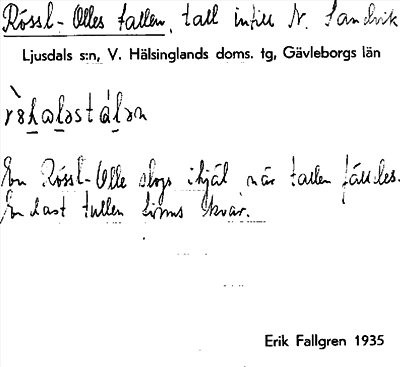 Rössl-Olles tallen, tall intill N. Sandvik
Ljusdals s:n, V. Hälsinglands doms. tg, Gävleborgs län
En Rössl-Olle slogs ihjäl när tallen fälldes.
Endast tullen finns kvar.
Erik Fallgren 1935